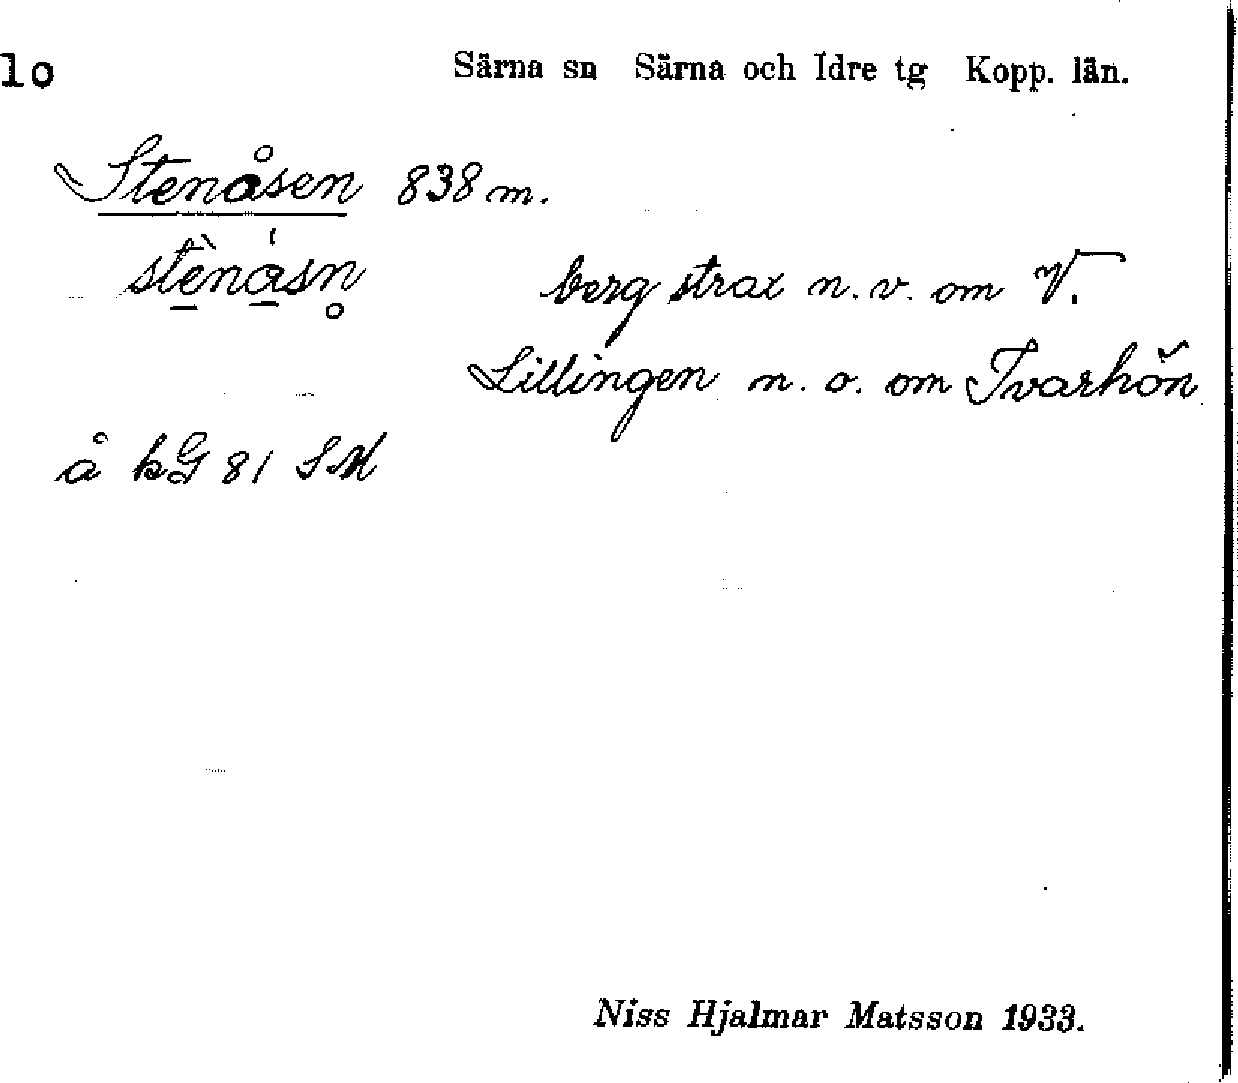 lo Särna sn Särna och Idre tg Kopp. län.
Stenåsen 838 m.
stènásn̥ berg strax n.v. om V.
Lillingen n.o. om Ivarhön
å kG 81 SM
Niss Hjalmar Matsson 1933.